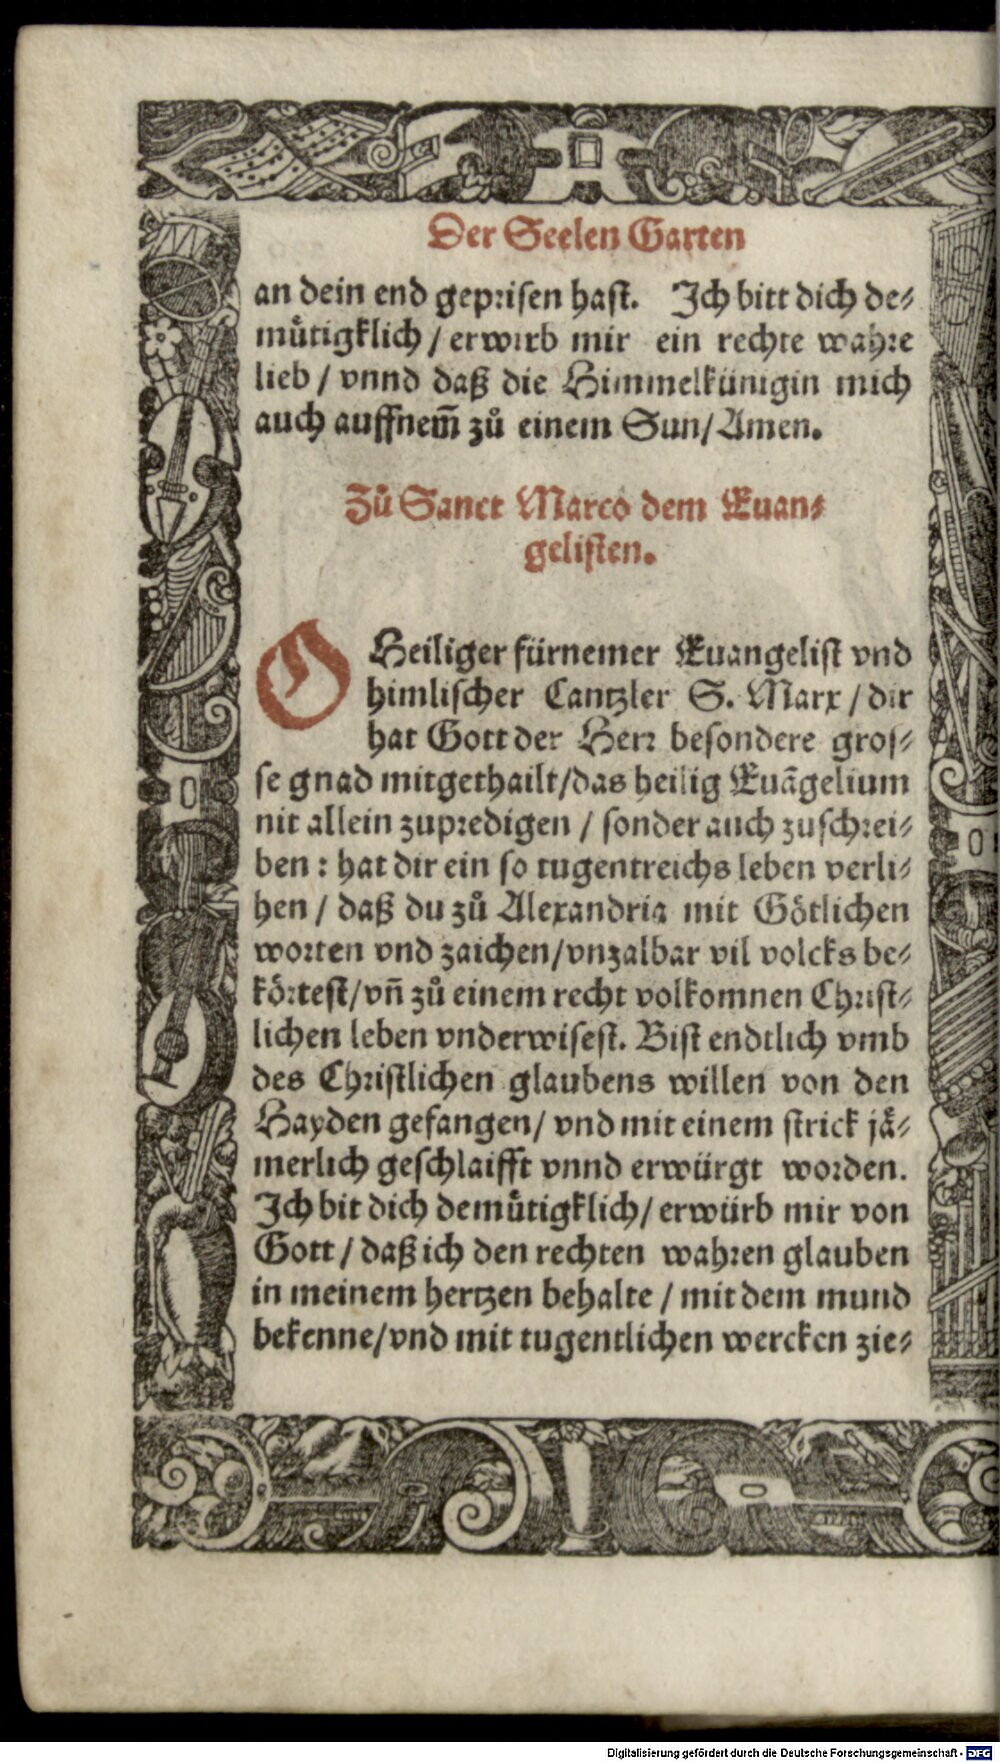 Der Seelen Garten
an dein end geprisen hast. Ich bitt dich de⸗
muͤtigklich / erwirb mir ein rechte wahre
lieb / vnnd daß die Himmelkünigin mich
auch auffnem̃ zuͦ einem Sun / Amen.
Zuͦ Sanct Marco dem Euan⸗
gelisten.
O Heiliger fürnemer Euangelist vnd
himlischer Cantzler S. Marx / dir
hat Gott der Herr besondere gros⸗
se gnad mitgethailt / das heilig Euãgelium
nit allein zupredigen / sonder auch zuschrei⸗
ben : hat dir ein so tugentreichs leben verli⸗
hen / daß du zuͦ Alexandria mit Goͤtlichen
worten vnd zaichen / vnzalbar vil volcks be⸗
koͤrtest / vñ zuͦ einem recht volkomnen Christ⸗
lichen leben vnderwisest. Bist endtlich vmb
des Christlichen glaubens willen von den
Hayden gefangen / vnd mit einem strick jaͤ⸗
merlich geschlaifft vnnd erwürgt worden.
Ich bit dich demuͤtigklich / erwürb mir von
Gott / daß ich den rechten wahren glauben
in meinem hertzen behalte / mit dem mund
bekenne / vnd mit tugentlichen wercken zie⸗
Digitalisierung gefördert durch die Deutsche Forschungsgemeinschaft - DFG